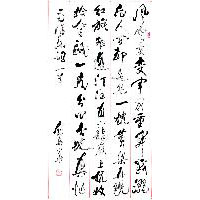 风云突变军阀重开战洒
向人间都是怨一枕黄粱再现
红旗跃过汀江直下龙岩上杭收
拾金瓯一片分田分地真忙
毛泽东词一首